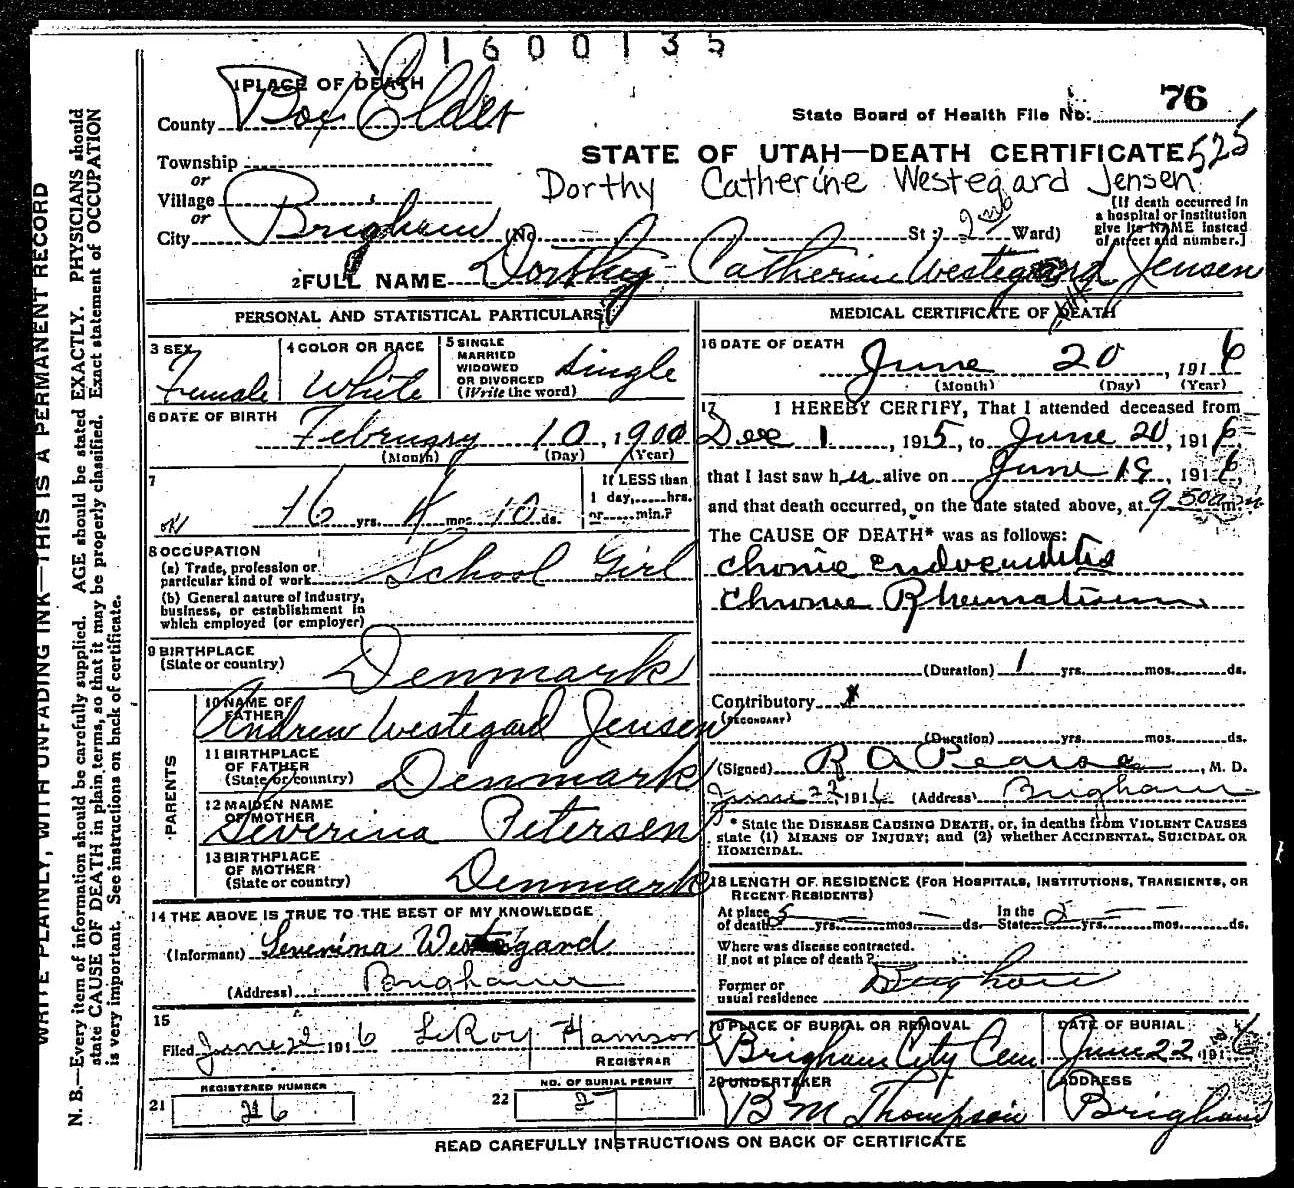 1600135
1 PLACE OF DEATH
County Box Elder
State Board of Health File No. 76
Township
or
Village
or
City Brigham (No. St.; 2nd Ward)
STATE OF UTAH—DEATH CERTIFICATE 525
Dorthy Catherine Westegard Jensen
[If death occurred in
a hospital or institution
give its NAME instead
of street and number.]
2 FULL NAME Dorthy Catherine Westegard Jensen
PERSONAL AND STATISTICAL PARTICULARS
3 SEX
Female
4 COLOR OR RACE
White
5 SINGLE
MARRIED
WIDOWED
OR DIVORCED
(Write the word)
Single
6 DATE OF BIRTH
February 10, 1900
(Month) (Day) (Year)
7
16 yrs. 4 mos. 10 ds.
If LESS than
1 day, hrs.
or min.?
8 OCCUPATION
(a) Trade, profession or
particular kind of work School Girl
(b) General nature of industry,
business, or establishment in
which employed (or employer)
9 BIRTHPLACE
(State or country) Denmark
PARENTS
10 NAME OF
FATHER
Andrew Westegard Jensen
11 BIRTHPLACE
OF FATHER
(State or country) Denmark
12 MAIDEN NAME
OF MOTHER
Severina Petersen
13 BIRTHPLACE
OF MOTHER
(State or country) Denmark
14 THE ABOVE IS TRUE TO THE BEST OF MY KNOWLEDGE
(Informant) Severina Westegard
(Address) Brigham
15
Filed June 22 1916 LeRoy Hamson
REGISTRAR
REGISTERED NUMBER
21 26
NO. OF BURIAL PERMIT
22
MEDICAL CERTIFICATE OF DEATH
16 DATE OF DEATH
June 20, 1916
(Month) (Day) (Year)
17 I HEREBY CERTIFY, That I attended deceased from
Dec 1, 1915, to June 20, 1916,
that I last saw her alive on June 19, 1916,
and that death occurred, on the date stated above, at 9 50 a m.
The CAUSE OF DEATH* was as follows:
Chronic endocarditis
Chronic Rheumatism
(Duration) 1 yrs. mos. ds.
Contributory
(SECONDARY)
(Duration) yrs. mos. ds.
(Signed) R A Pearse, M. D.
June 22, 1916 (Address) Brigham
* State the DISEASE CAUSING DEATH, or, in deaths from VIOLENT CAUSES
state (1) MEANS OF INJURY; and (2) whether ACCIDENTAL, SUICIDAL OR
HOMICIDAL.
18 LENGTH OF RESIDENCE (FOR HOSPITALS, INSTITUTIONS, TRANSIENTS, OR
RECENT RESIDENTS)
At place
of death 5 yrs. — mos. — ds.
In the
State 5 yrs. — mos. ds.
Where was disease contracted.
If not at place of death?
Former or
usual residence Brigham
19 PLACE OF BURIAL OR REMOVAL
Brigham City Cem
DATE OF BURIAL
June 22, 1916
20 UNDERTAKER
B M Thompson
ADDRESS
Brigham
READ CAREFULLY INSTRUCTIONS ON BACK OF CERTIFICATE
WRITE PLAINLY, WITH UNFADING INK—THIS IS A PERMANENT RECORD
N. B.—Every item of information should be carefully supplied. AGE should be stated EXACTLY. PHYSICIANS should
state CAUSE OF DEATH in plain terms, so that it may be properly classified. Exact statement of OCCUPATION
is very important. See instructions on back of certificate.